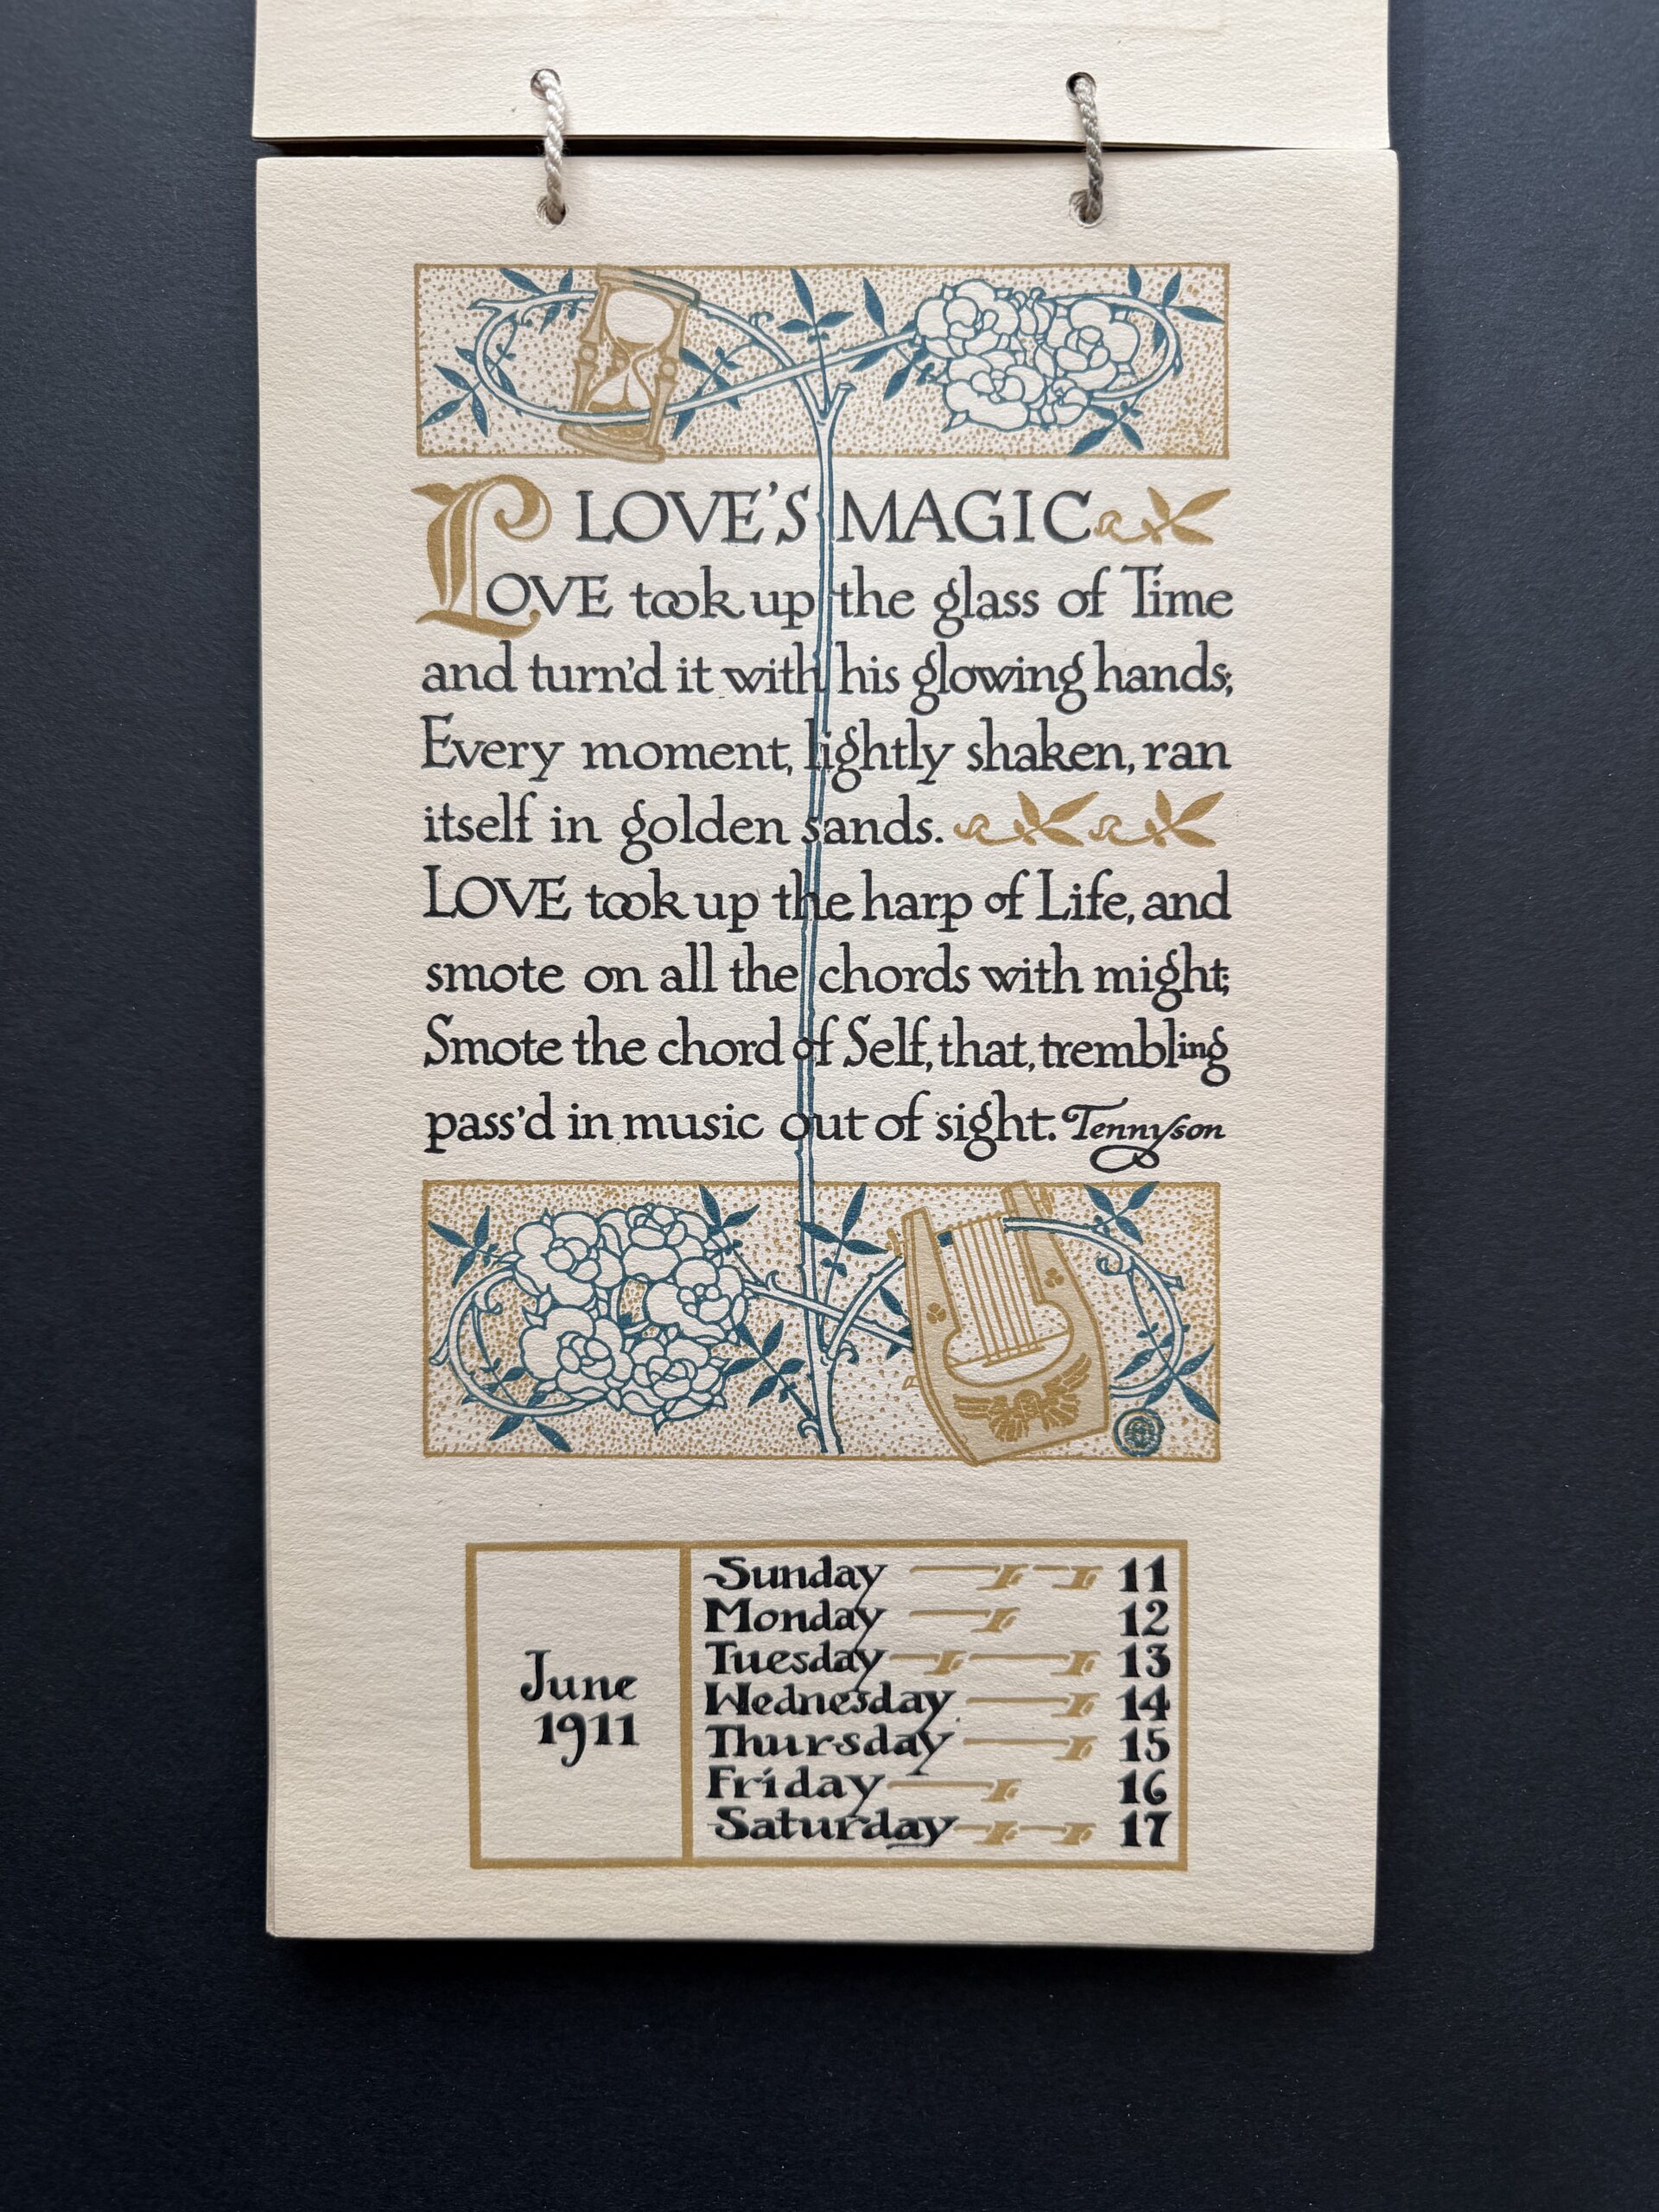 LOVE'S MAGIC
LOVE took up the glass of Time
and turn'd it with his glowing hands;
Every moment, lightly shaken, ran
itself in golden sands.
LOVE took up the harp of Life, and
smote on all the chords with might;
Smote the chord of Self, that, trembling
pass'd in music out of sight. Tennyson
June
1911
Sunday 11
Monday 12
Tuesday 13
Wednesday 14
Thursday 15
Friday 16
Saturday 17